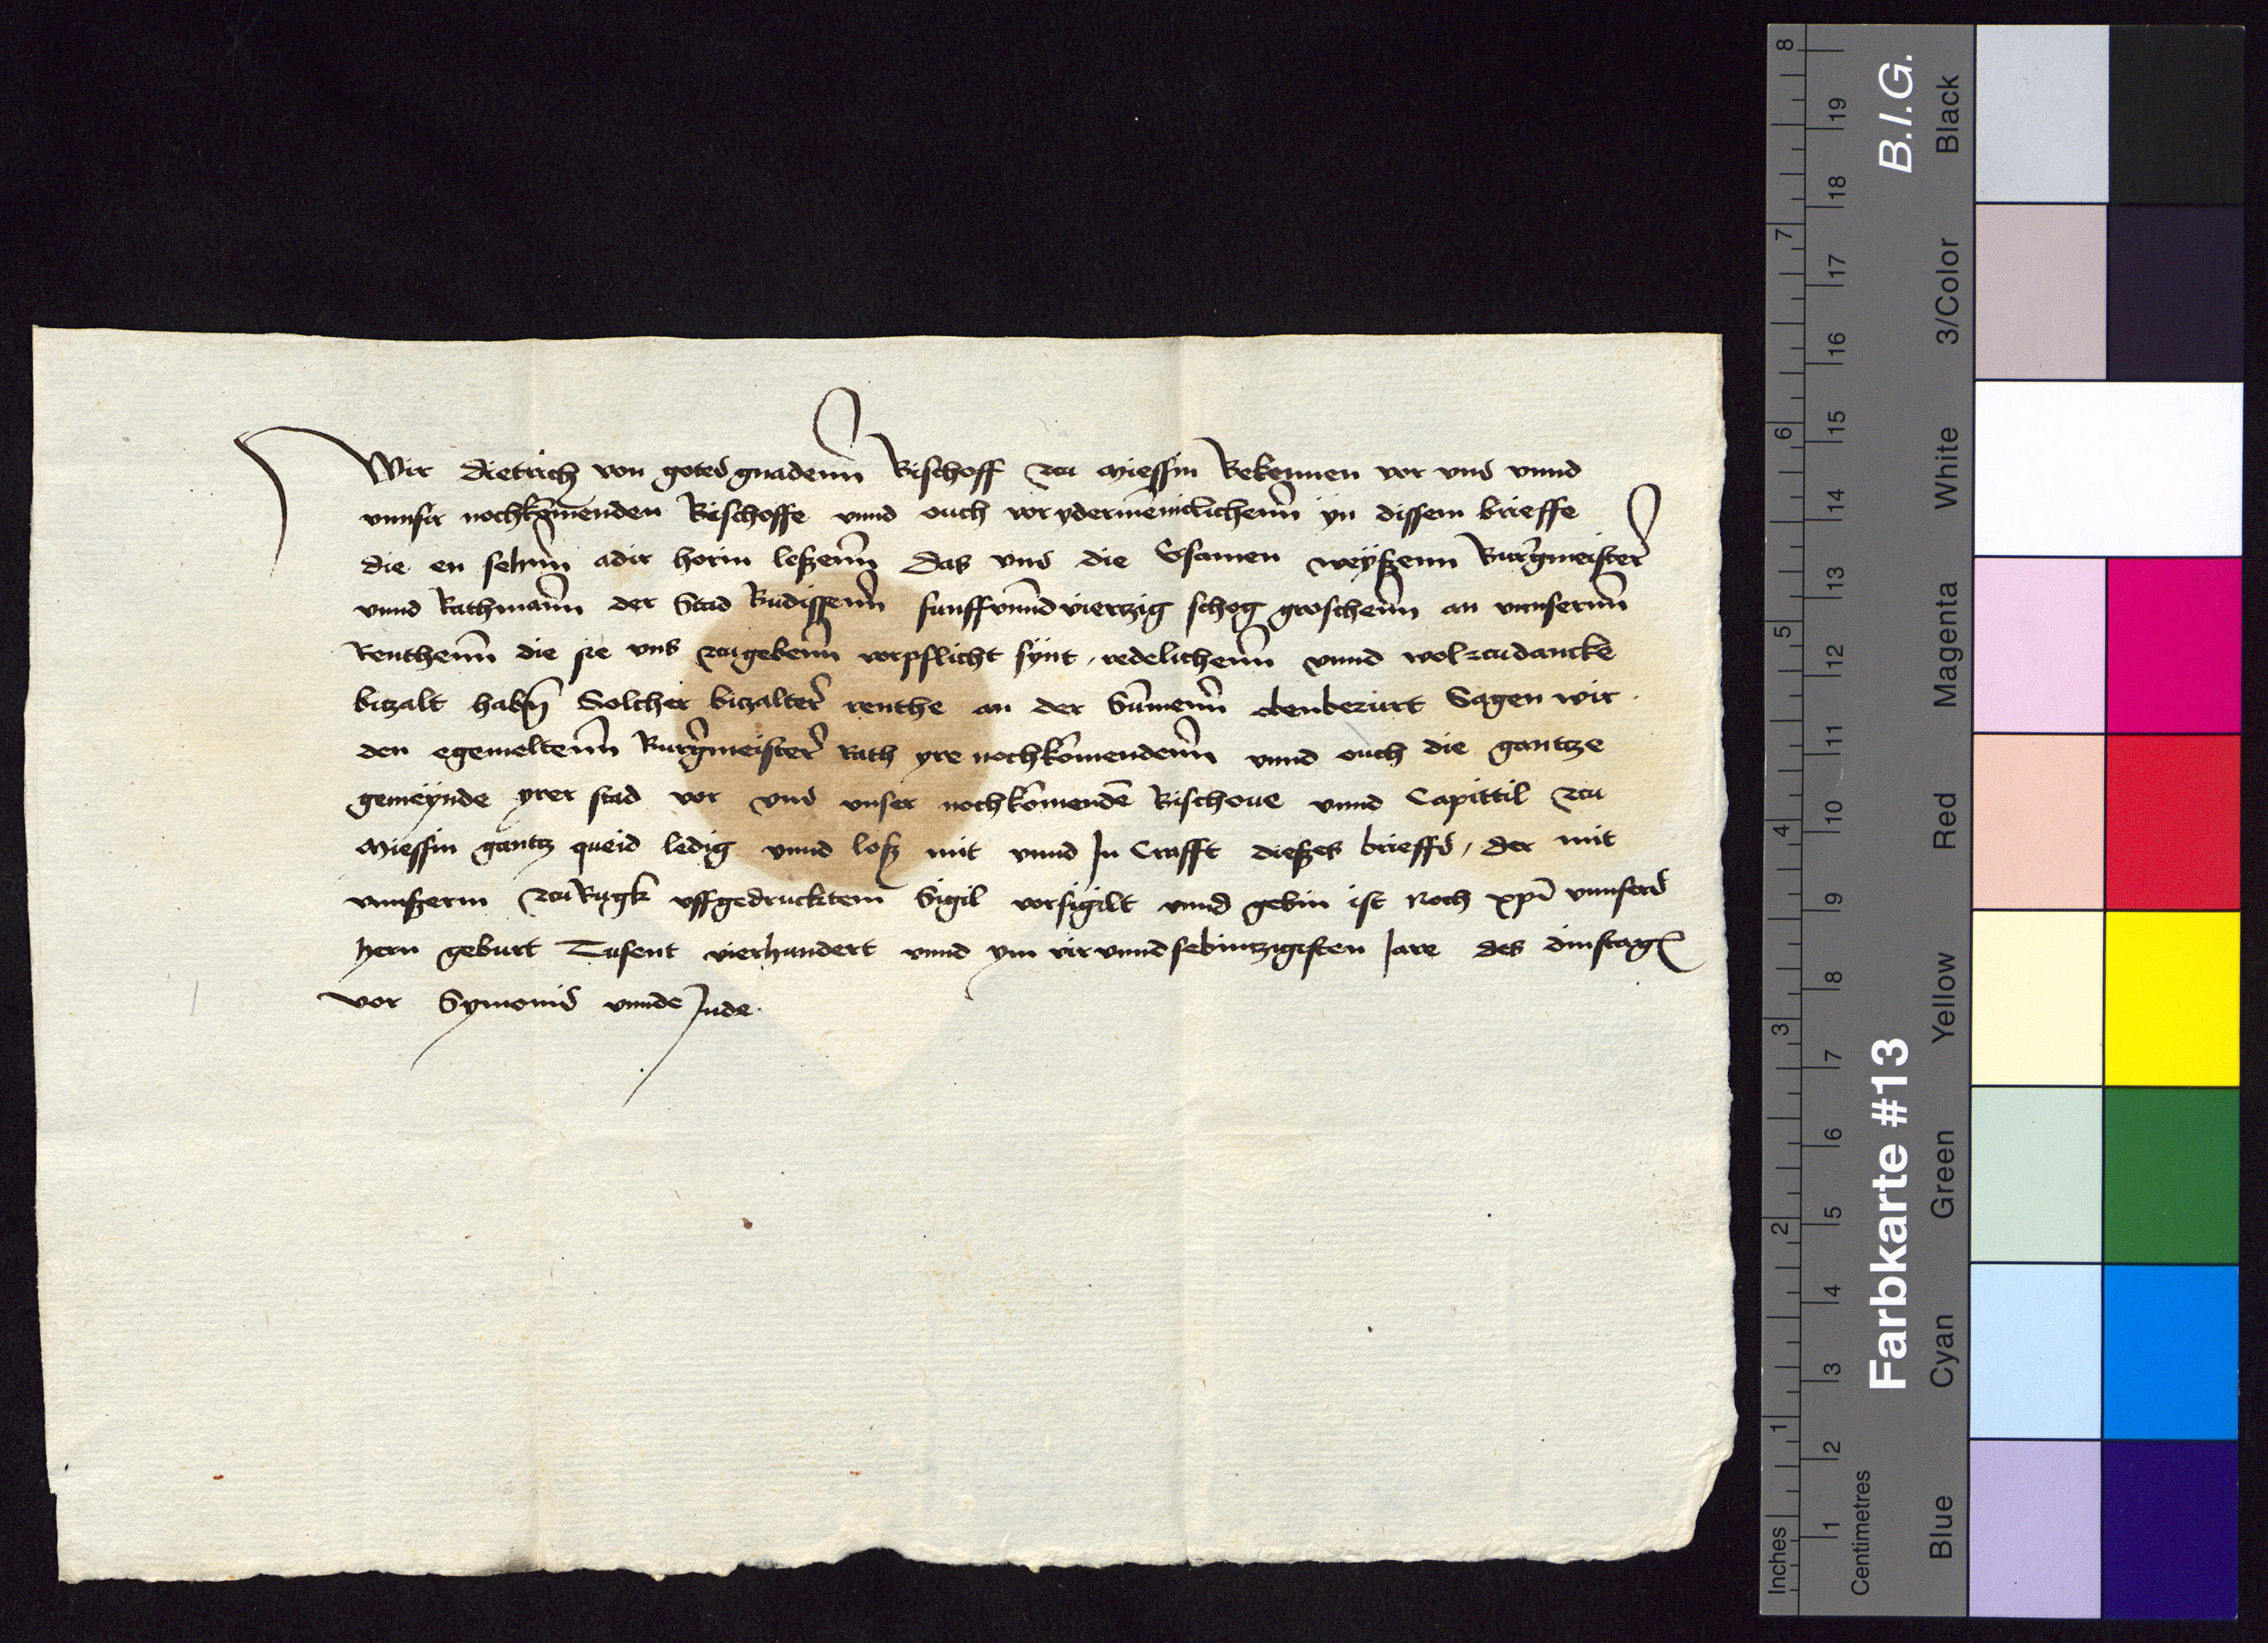 Wir Dietrich von gotes gnadenn Bischoff zcu Miessin Bekennen vor vns vnnd
vnnsir nochkōmenden Bischoffe vnnd ouch vor ydermēniclichenn yn dissem brieffe
die en sehnn adir horin leßenn Das vns die Ersamen weyßenn Burgmeister
vnnd Rathmann der Stad Budissenn funffvnndviertzig schog groschenn an vnnsernn
Renthenn die sie vns zcugebenn vorpflicht synt, redelichenn vnnd wolzcudancke
biczalt habn Solcher biczalter renthe an der Sum̄enn obenberurt Sagen wir
den egemeltenn Burgmeister Rath yre nochkōmendenn vnnd ouch die gantcze
gemeynde yrer stad vor vns vnser nochkōmendē Bischoue vnnd Capittil zcu
Miessin gantcz queid ledig vnnd loß mit vnnd In Crafft dießes brieffs, der mit
vnnßerm zcuRugk vffgedrucktem Sigil vorsigilt vnnd gebin ist Noch xpī vnnsers
hern geburt Tusent vierhundert vnnd ym vir vnndsebintzigisten Jare des dinstags
vor Symonis vnnde Jude.
8
7
6
5
4
3
2
1
Inches
19
18
17
16
15
14
13
12
11
10
9
8
7
6
5
4
3
2
1
Centimetres
B.I.G.
Farbkarte #13
Black
3/Color
White
Magenta
Red
Yellow
Green
Cyan
Blue